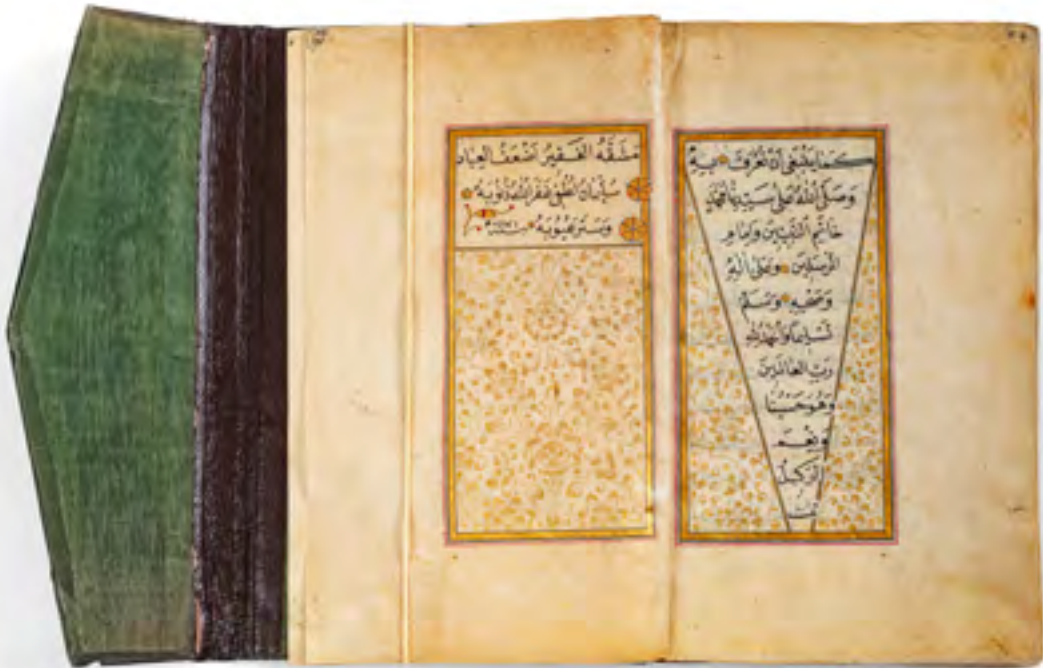 كما ينبغي ان تعرف به
وصلى الله على سيدنا محمد
خاتم النبيين وامام
المرسلين وعلى اله
وصحبه وسلم
تسليما والحمد لله
رب العالمين
وهو حسبنا
ونعم
الوكيل
مشقه الفقير اضعف العباد
سليمان لطفي غفر الله ذنوبه
وستر عيوبه سنة